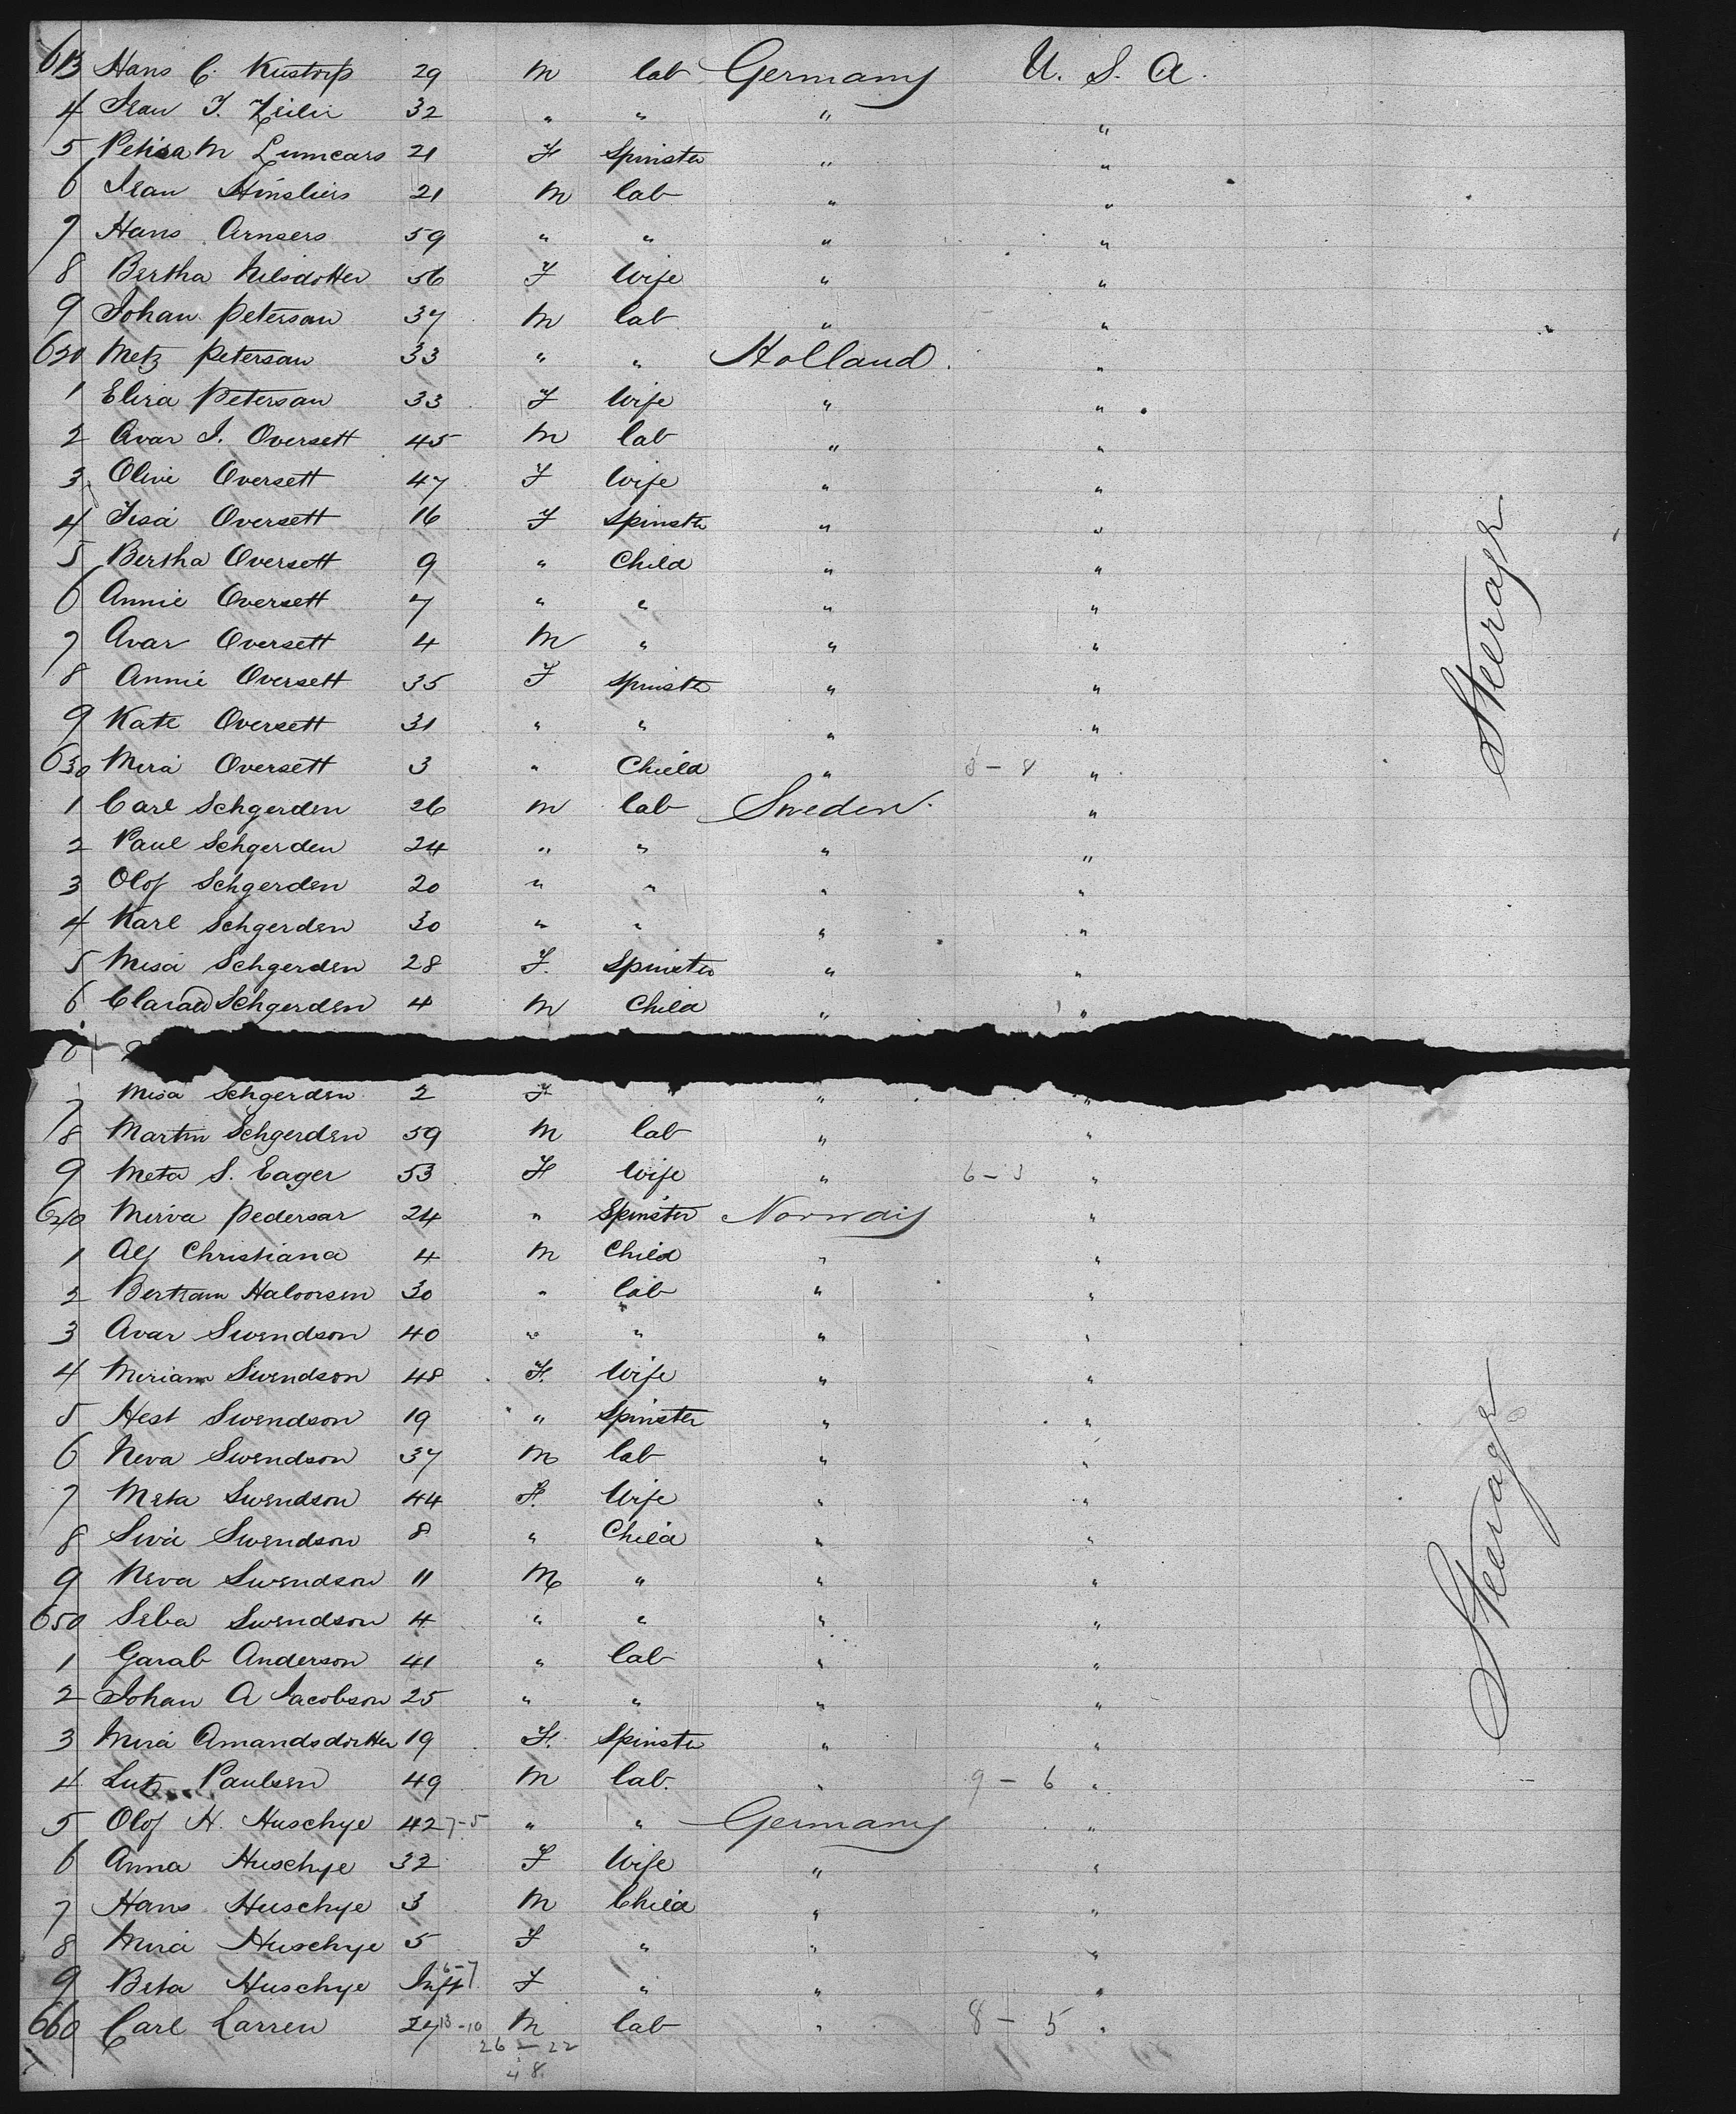 613 Hans C. Kustorp 29 M lab Germany U. S. A.
4 Jean J. 32 " " " "
5 M 21 F Spinster " "
6 Jean 21 M lab " "
7 Hans Arnsers 59 " " " "
8 Bertha Nelsdotter 56 F Wife " "
9 Johan Petersan 37 M lab " "
620 Metz Petersan 33 " " Holland "
1 Elisa Petersan 33 F Wife " "
2 Avar J. Oversett 45 M lab " "
3 Olive Oversett 47 F Wife " "
4 Oversett 16 F Spinster " "
5 Bertha Oversett 9 " Child " "
6 Annie Oversett 7 " " " "
7 Avar Oversett 4 M " " "
8 Annie Oversett 35 F Spinste " "
9 Kate Oversett 31 " " " "
630 Mira Oversett 3 " Child " 3 - 8 "
1 Carl Schgerden 26 M lab Sweden "
2 Paul Schgerden 24 " " " "
3 Olof Schgerden 20 " " " "
4 Karl Schgerden 30 " " " "
5 Misa Schgerden 28 F. Spinster " "
6 Schgerden 4 M Child " "
7 Misa Schgerden 2 F " " "
8 Martin Schgerden 59 M lab " "
9 Meta S. Eager 53 F Wife " 6 - 3 "
640 Mirva Pedersar 24 " Spinster Norway "
1 Alf Christiana 4 M Child " "
2 Bertram Halvorsen 30 " lab " "
3 Avar Swendson 40 " " " "
4 Miriam Swendson 48 F. Wife " "
5 Hest Swendson 19 " Spinster " "
6 Neva Swendson 37 M lab " "
7 Meta Swendson 44 F. Wife " "
8 Siva Swendson 8 " Child " "
9 Neva Swendson 11 M " " "
650 Selva Swendson 4 " " " "
1 Garab Anderson 41 " lab " "
2 Johan A Jacobson 25 " " " "
3 Mira Amandsdotter 19 F. Spinste " "
4 Lutz Paulsen 49 M lab. " 9 - 6 "
5 Olof H. Huschye 42 7-5 " " Germany "
6 Anna Huschye 32 F Wife " "
7 Hans Huschye 3 M Child " "
8 Mira Huschye 5 F " " "
9 Beta Huschye Inft 6-7 F " " "
660 Carl Larren 27 13-10 M lab " 8 - 5 "
26 - 22
48
Steerage
Steerage